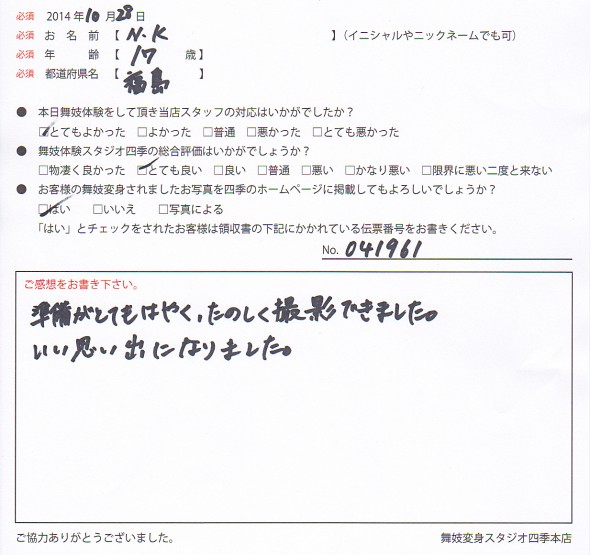 必須 2014年10月28日
必須 お名前【 N.K 】(イニシャルやニックネームでも可)
必須 年齢【 17 歳】
必須 都道府県名【 福島 】
● 本日舞妓体験をして頂き当店スタッフの対応はいかがでしたか?
□とてもよかった □よかった □普通 □悪かった □とても悪かった
● 舞妓体験スタジオ四季の総合評価はいかがでしょうか?
□物凄く良かった □とても良い □良い □普通 □悪い □かなり悪い □限界に悪い二度と来ない
● お客様の舞妓変身されましたお写真を四季のホームページに掲載してもよろしいでしょうか?
□はい □いいえ □写真による
「はい」とチェックをされたお客様は領収書の下記にかかれている伝票番号をお書きください。
No. 041961
ご感想をお書き下さい。
準備がとてもはやく、たのしく撮影できました。
いい思い出になりました。
ご協力ありがとうございました。 舞妓変身スタジオ四季本店